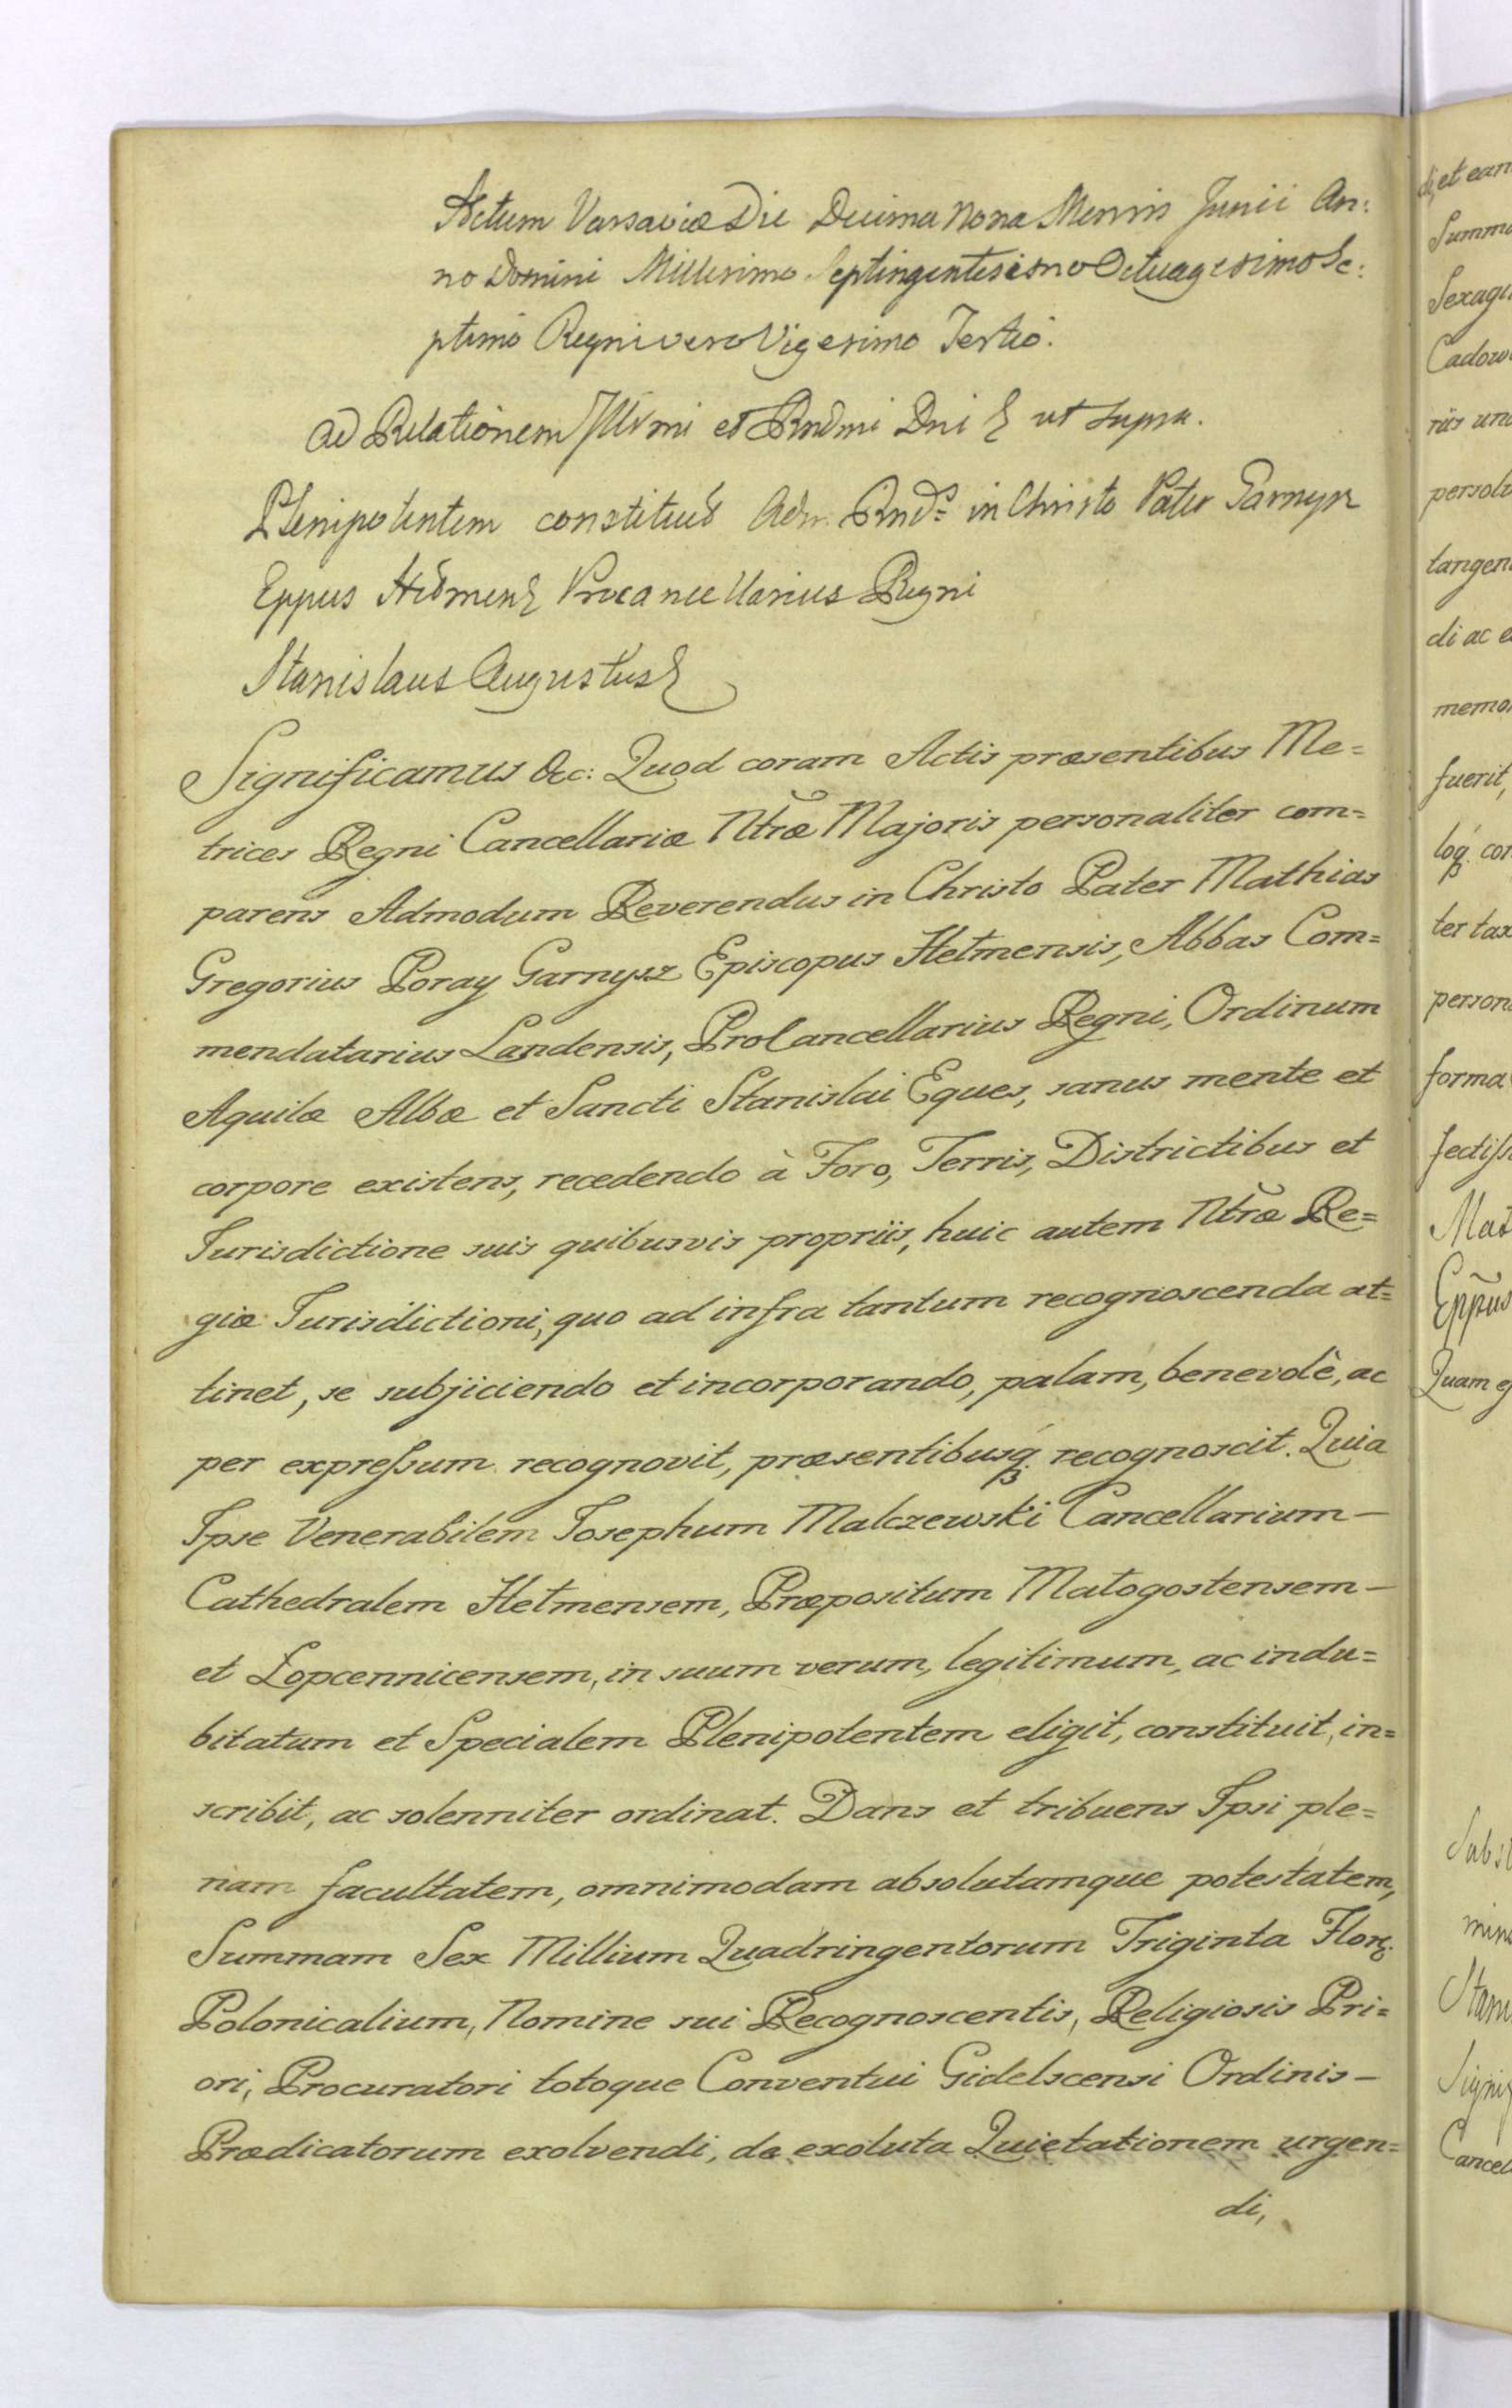 Actum Varsaviæ Die Decima Nona Mensis Junii An:
no Domini Millesimo Septingentesimo Octuagesimo Se:
ptimo Regni vero Vigesimo Tertio.
Ad Relationem Illmi et Rndmi Dni & ut supra.
Plenipotentem constituit Adm. Rnds in Christo Pater Garnysz
Eppus Hełmens Procancellarius Regni
Stanislaus Augustus &
Significamus &c: Quod coram Actis præsentibus Me=
trices Regni Cancellariæ Ntræ Majoris personaliter com=
parens Admodum Reverendus in Christo Pater Mathias
Gregorius Poray Garnysz Episcopus Hełmensis, Abbas Com=
mendatarius Landensis, ProCancellarius Regni, Ordinum
Aquilæ Albæ et Sancti Stanislai Eques, sanus mente et
corpore existens, recedendo à Foro, Terris, Districtibus et
Jurisdictione suis quibusvis propriis, huic autem Ntræ Re=
giæ Jurisdictioni, quo ad infra tantum recognoscenda at=
tinet, se subjiciendo et incorporando, palam, benevolè, ac
per expreſsum recognovit, præsentibusq́ recognoscit. Quia
Ipse Venerabilem Josephum Malczewski Cancellarium—
Cathedralem Hełmensem, Præpositum Małogostensem—
et Łopcennicensem, in suum verum, legitimum, ac indu=
bitatum et Specialem Plenipotentem eligit, constituit, in=
scribit, ac solenniter ordinat. Dans et tribuens Ipsi ple=
nam facultatem, omnimodam absolutamque potestatem,
Summam Sex Millium Quadringentorum Triginta Flor.
Polonicalium, Nomine sui Recognoscentis, Religiosis Pri=
ori, Procuratori totoque Conventui Gidelscensi Ordinis—
Prædicatorum exolvendi, de exoluta Quietationem urgen=
di,
di, et ean
Summ
Sexag
Cadow
riis un
persol
tangen
di ac e
memo
fuerit,
loq́ co
ter tax
person
forma
fectiſs
Mat
Eppus
Quam e
Subs
min
Stan
Signi
Cancel